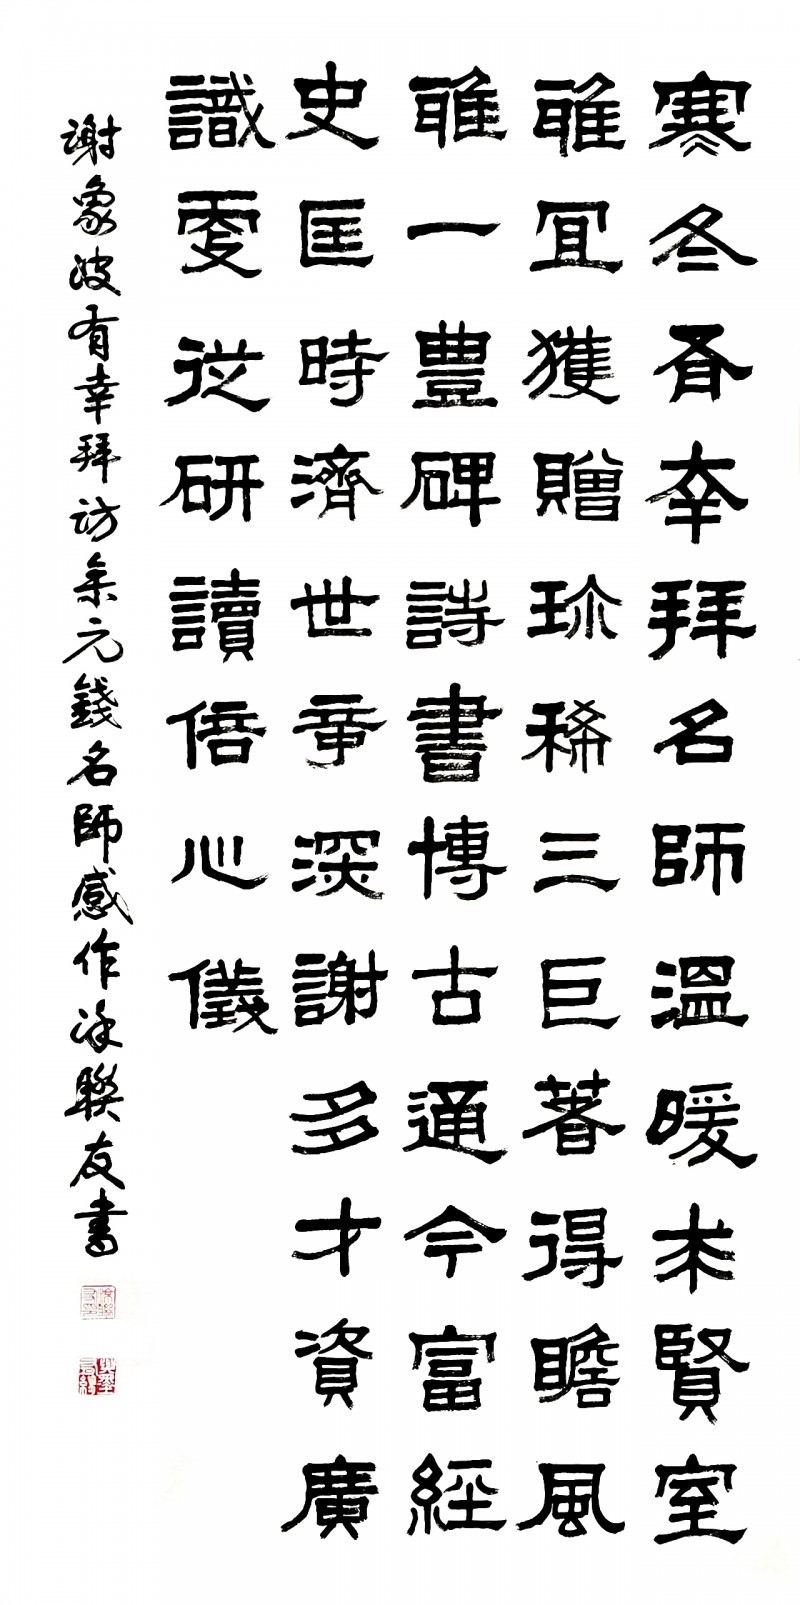 寒冬有幸拜名師溫暖来賢室
雅宜獲贈珍稀三巨著得瞻風
雅一豐碑詩書博古通今富經
史匡時濟世竒深謝多才資廣
識更從研讀悟心儀
謝象波有幸拜訪余元錢名師感作涂聯友書